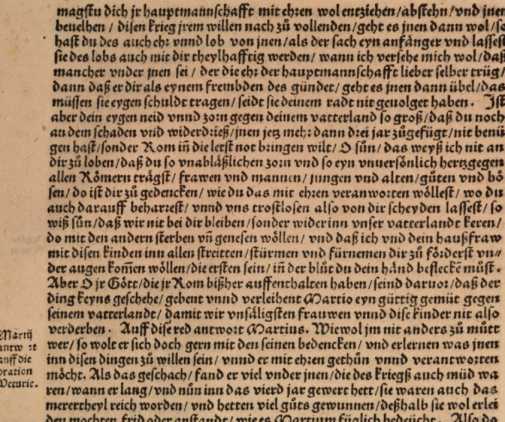 magstu dich jr hauptmannschafft mit ehren wol entziehen/abstehn/vnd jnen
beuelhen/ disen krieg jrem willen nach zů vollenden/geht es jnen dann wol/so
hast du des auch ehr vnnd lob von jnen/als der sach eyn anfänger vnd lassest
sie des lobs auch mit dir theylhafftig werden/ wann ich versehe mich wol/daß
mancher vnder jnen sei / der die ehr der hauptmannschafft lieber selber trüg/
dann daß er dir als eynem frembden des günder/ geht es jnen dann übel/das
müssen sie eygen schuldt tragen/ seidt sie deinem radt nit geuolget haben. Ist
aber dein eygen neid vnnd zorn gegen deinem vatterland so groß/daß du noch
an dem schaden vnd widerdrieß/jnen jetz mehr dann drei jar zůgefügt/nit benü
gen hast/sonder Rom inn die letst not bringen wilt/ O sůn/ das weyß ich nit an
dir zů loben/daß du so vnabläßlichen zorn vnd so eyn vnuersönlich hertz gegen
allen Römern trägst/ frawen vnd mannen/ jungen vnd alten/gůten vnd bö
sen/ do ist dir zů gedencken/ wie du das mit ehren veranworten wöllest/ wo du
auch darauff beharrest/ vnnd vns trostlosen also von dir scheyden lassest/ so
wiß sůn/daß wir nit bei dir bleiben/sonder wider inn vnser vatterlandt keren/
do mit den andern sterben vñ genesen wöllen/ vnd daß ich vnd dein haußfraw
mit disen kinden inn allen streitten/stürmen vnd fürnemen dir zů förderst vn⸗
der augen kom̃en wöllen/die ersten sein/ in der blůt du dein händ beflecken můst.
Aber O jr Gött/die jr Rom bißher auffenthalten haben/seind daruor/daß der
ding keyns geschehe/gebent vnnd verleihent Martio eyn güttig gemüt gegen
seinem vatterlandt/ damit wir vnsäligsten frauwen vnnd dise kinder nit also
verderben. Auff dise red antwort Martius. Wiewol jm nit anders zů můtt
wer/so wolt er sich doch gern mit den seinen bedencken/ vnd erlernen was jnen
inn disen dingen zů willen sein/ vnnd er mit ehren gethůn vnnd verantworten
möcht. Als das geschach/ fand er viel vnder jnen/die des kriegß auch müd wa
ren/wann er lang/vnd nůn inn das vierd jar gewert hett/sie waren auch das
merertheyl reich worden/ vnd hetten viel gůts gewunnen/deßhalb sie wol erlei
den mochten frid oder anstandt/ wie es Martium füglich bedeücht. Also do
Martij
antwort
auff die
oration
Veturie.